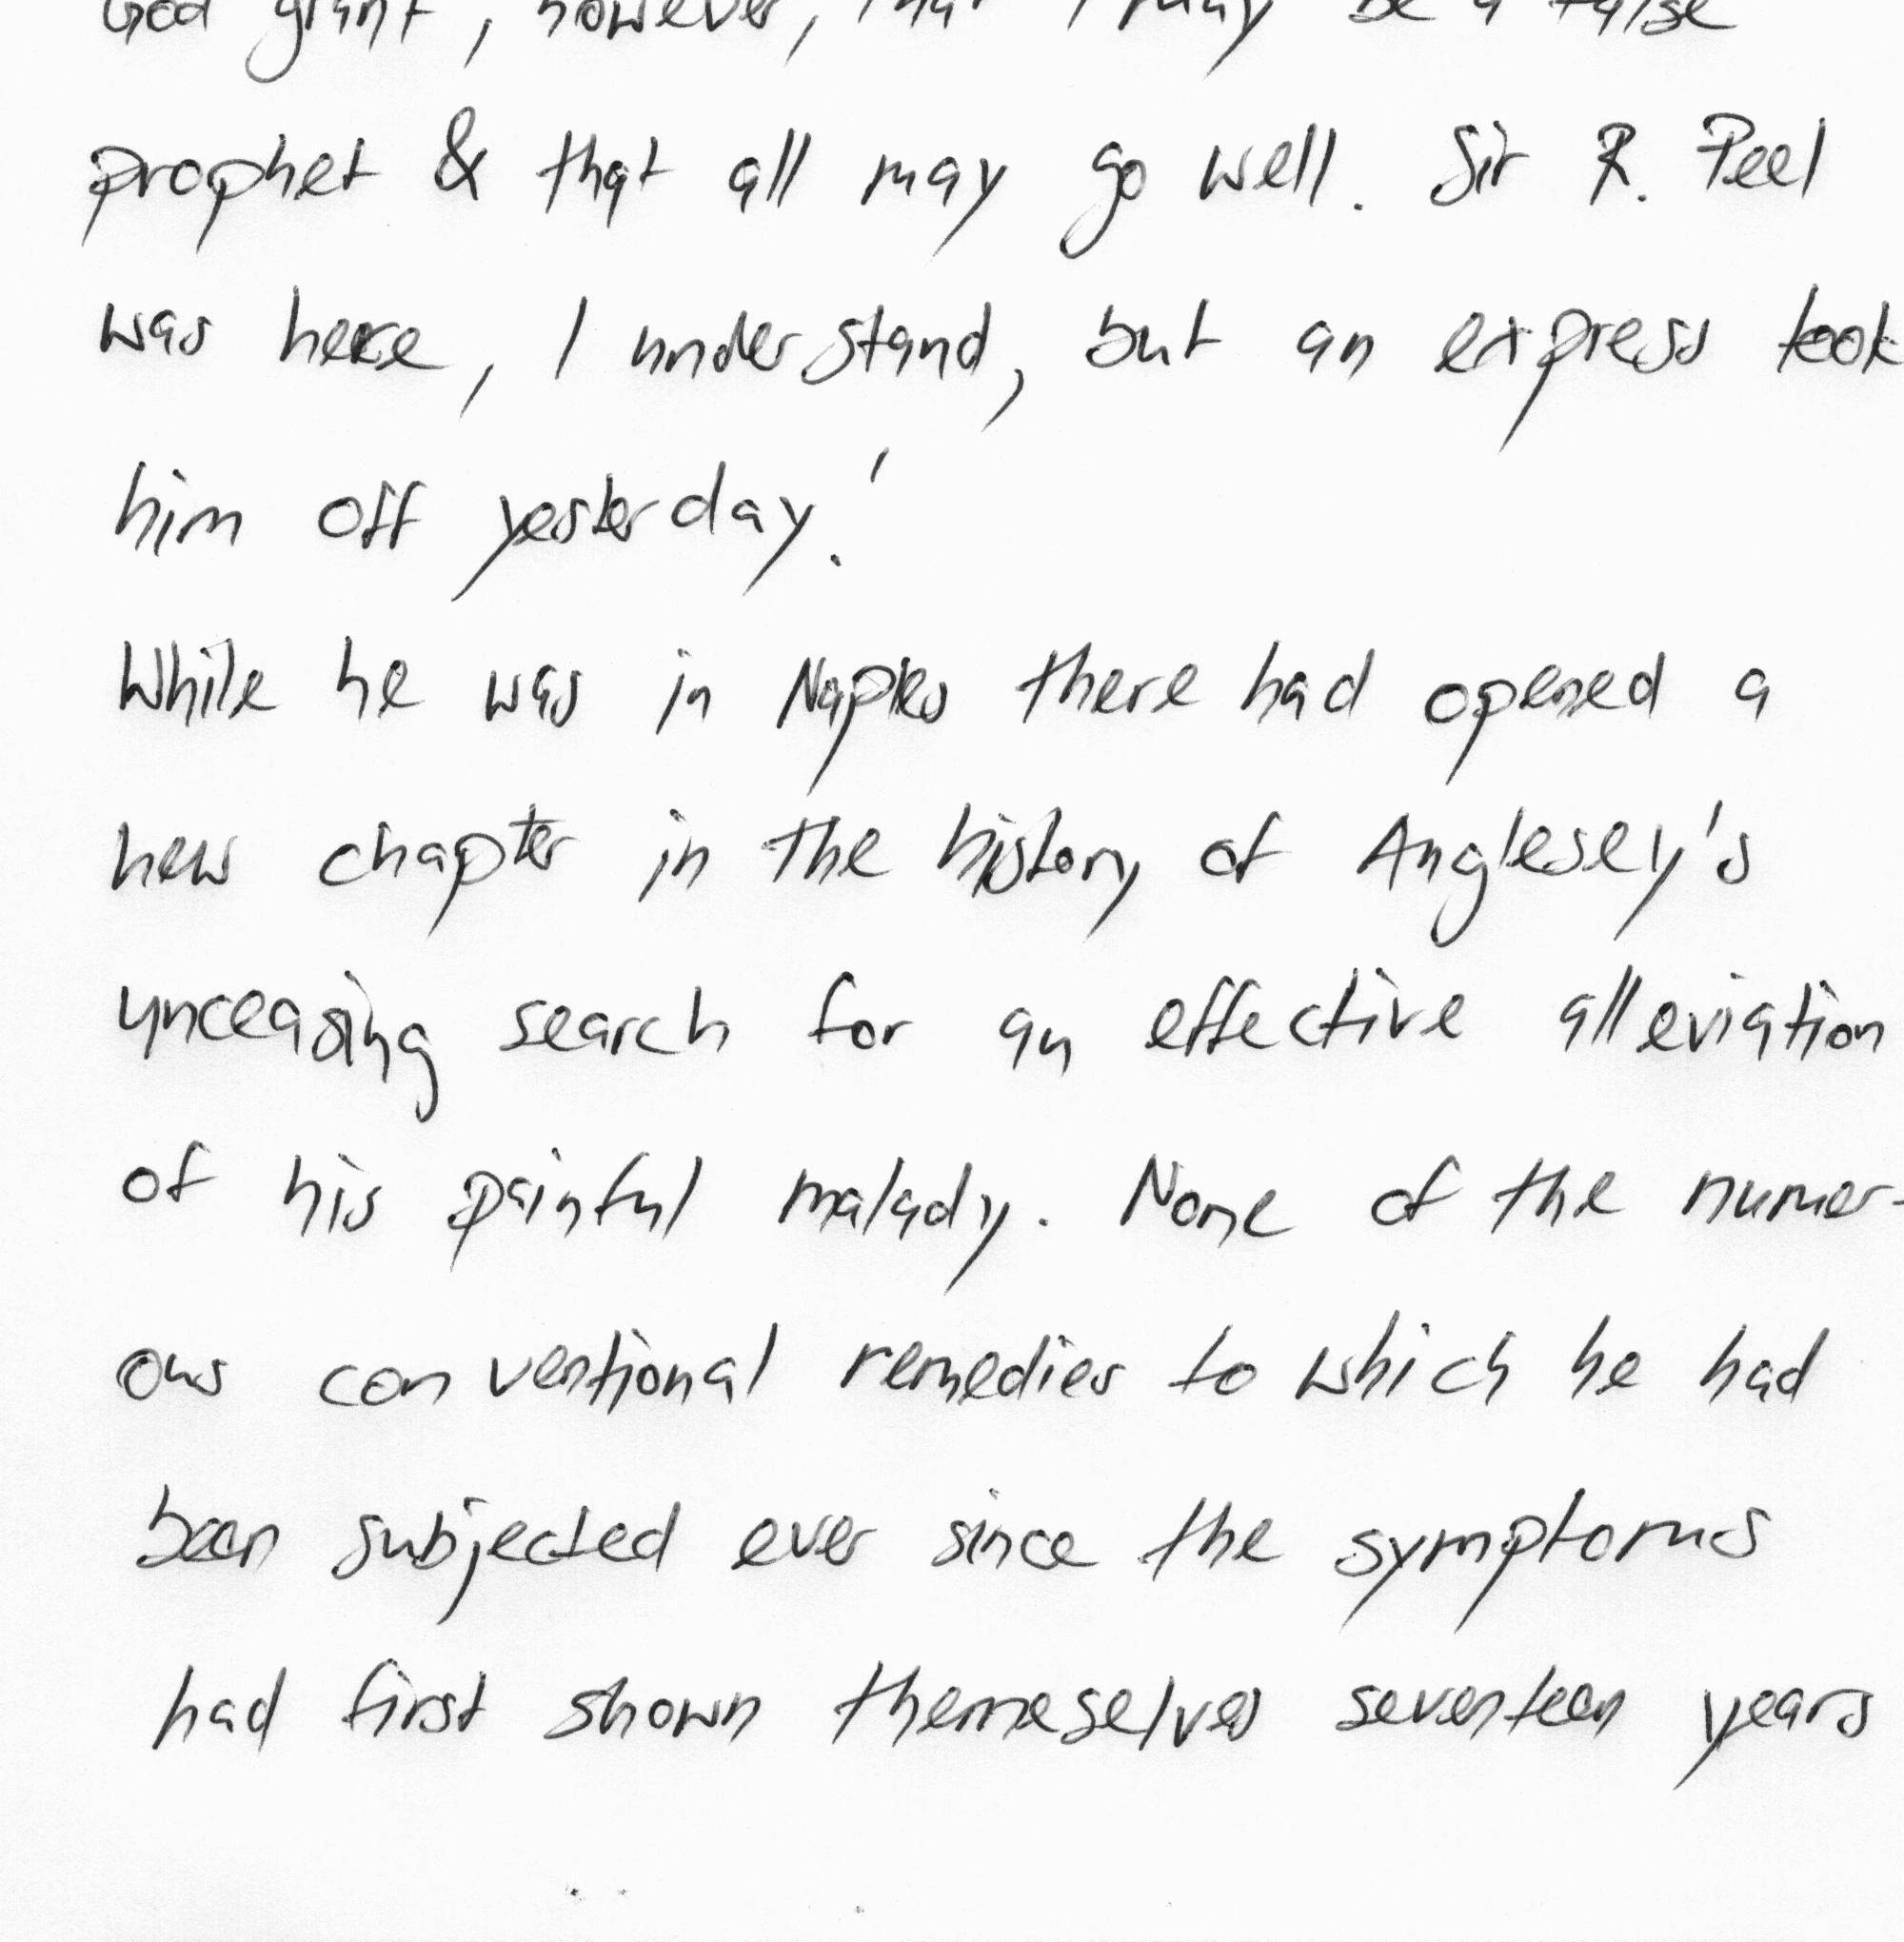 God grant, however, that I may be a false
prophet & that all may go well. Sir R. Peel
was here, I understand, but an express took
him off yesterday.'
While he was in Naples there had opened a
new chapter in the history of Anglesey's
unceasing search for an effective alleviation
of his painful malady. None of the numer-
ous conventional remedies to which he had
been subjected ever since the symptoms
had first shown themeselves seventeen years